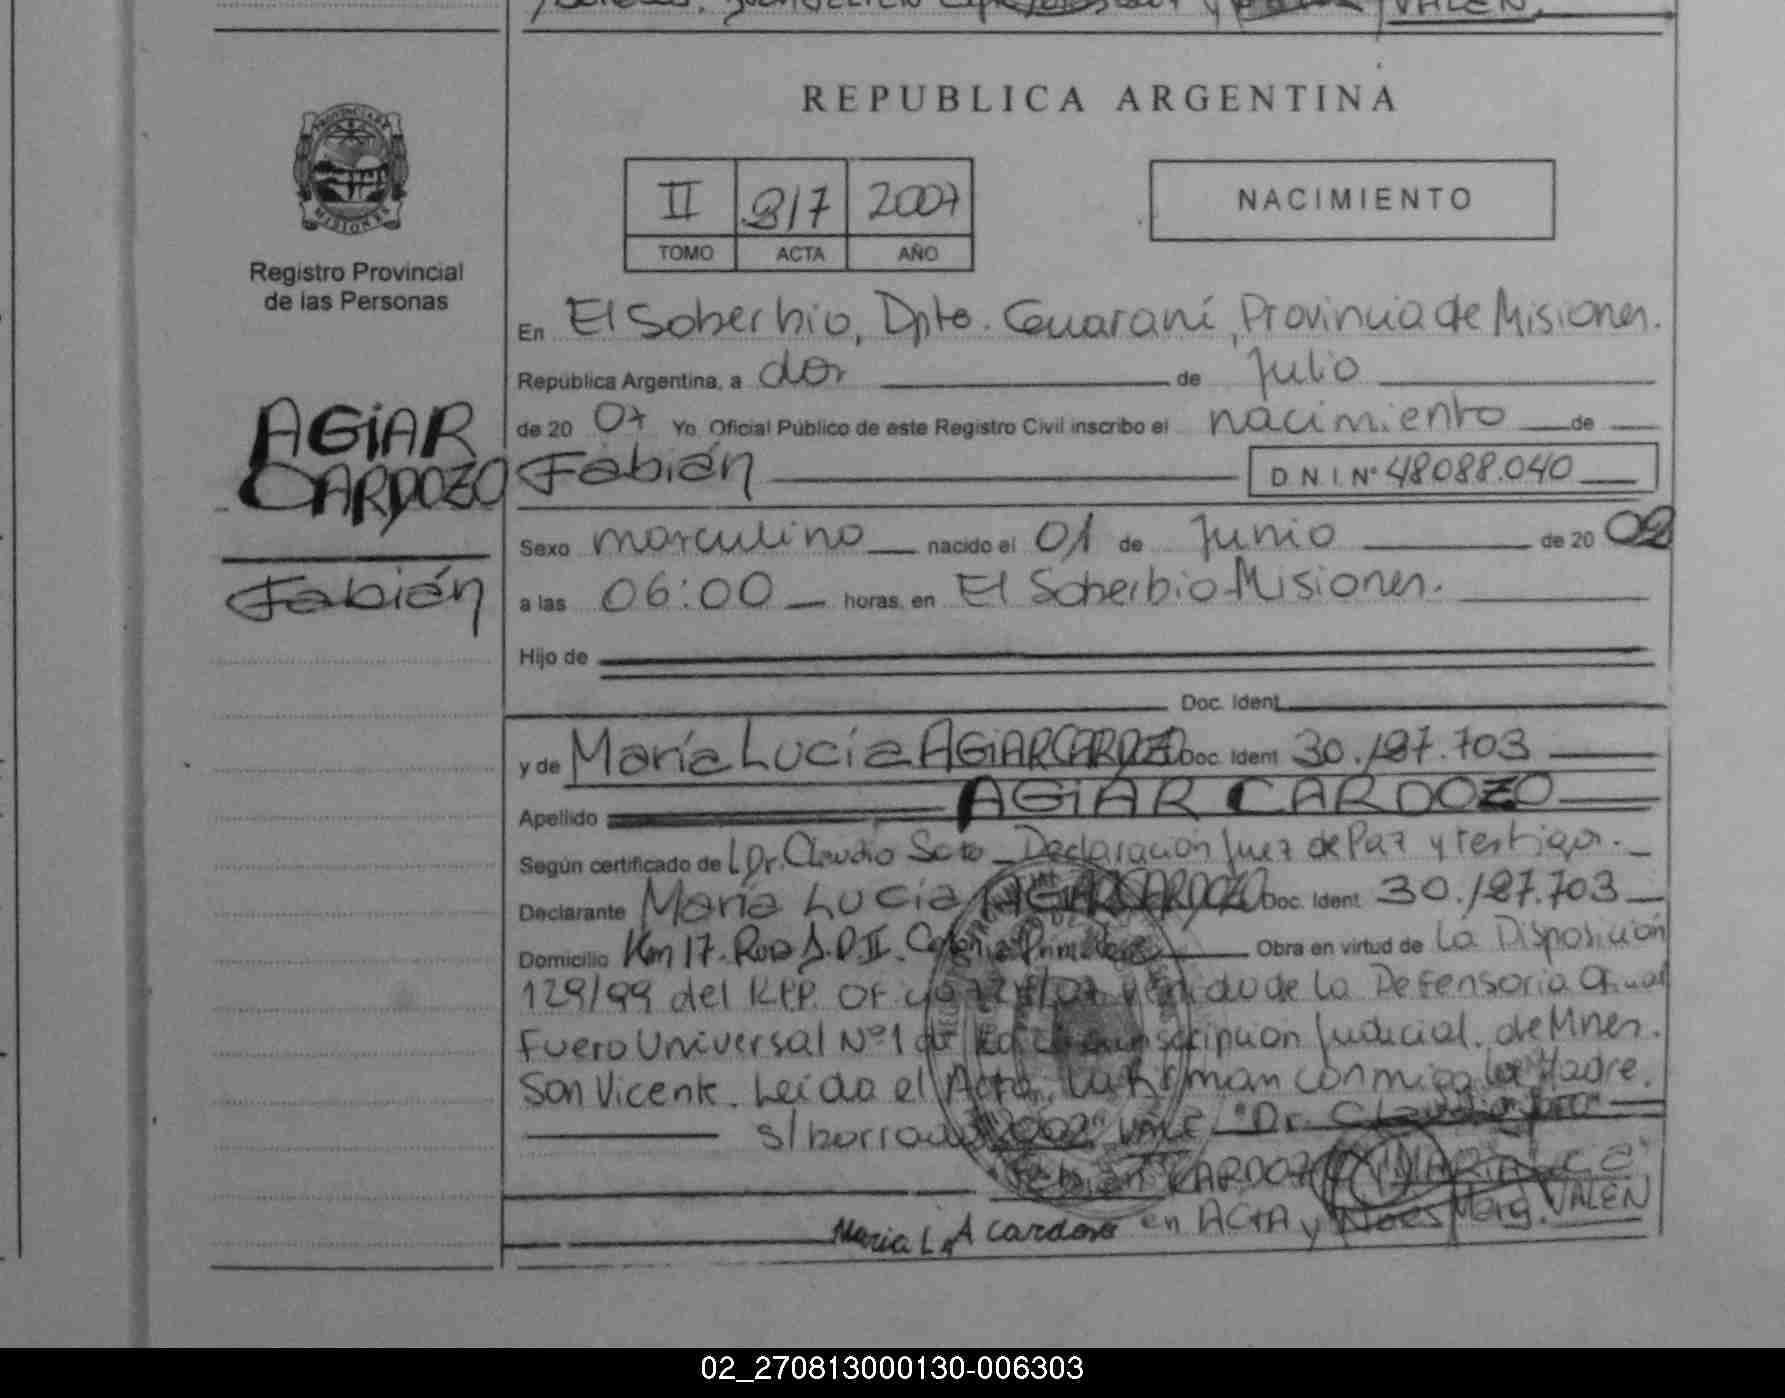 VALEN.
REPUBLICA ARGENTINA
PROVINCIA DE
MISIONES
Registro Provincial
de las Personas
II 217 2007
TOMO ACTA AÑO
NACIMIENTO
En El Soberbio, Dpto. Guaraní, Provincia de Misiones.
República Argentina, a dos de Julio
de 20 07 Yo Oficial Público de este Registro Civil inscribo el nacimiento de
AGIAR
CARDOZO
Fabián
Fabián D.N.I.Nº 48088.040
Sexo masculino nacido el 01 de Junio de 20 02
a las 06:00 horas, en El Soberbio-Misiones.
Hijo de
Doc. Ident.
y de María Lucía AGIAR CARDOZO Doc. Ident. 30.187.703
Apellido AGIAR CARDOZO
Según certificado de Dr. Claudio Soto - Declaración Juez de Paz y testigos.
Declarante María Lucía AGIAR CARDOZO Doc. Ident. 30.187.703
Domicilio Km 17. Ruta Obra en virtud de La Disposición
129/99 del RPP. Of. de la Defensoria
Fuero Universal Nº1 de Judicial. de Mnes.
San Vicente. Leída el Acta, la firman conmigo la Madre.
s/borrado "2002" VALE "Dr. Claudio Soto"
Fabián CARDOZO
Maria L. A Cardozo en ACTA y Marg. VALEN
02_270813000130-006303